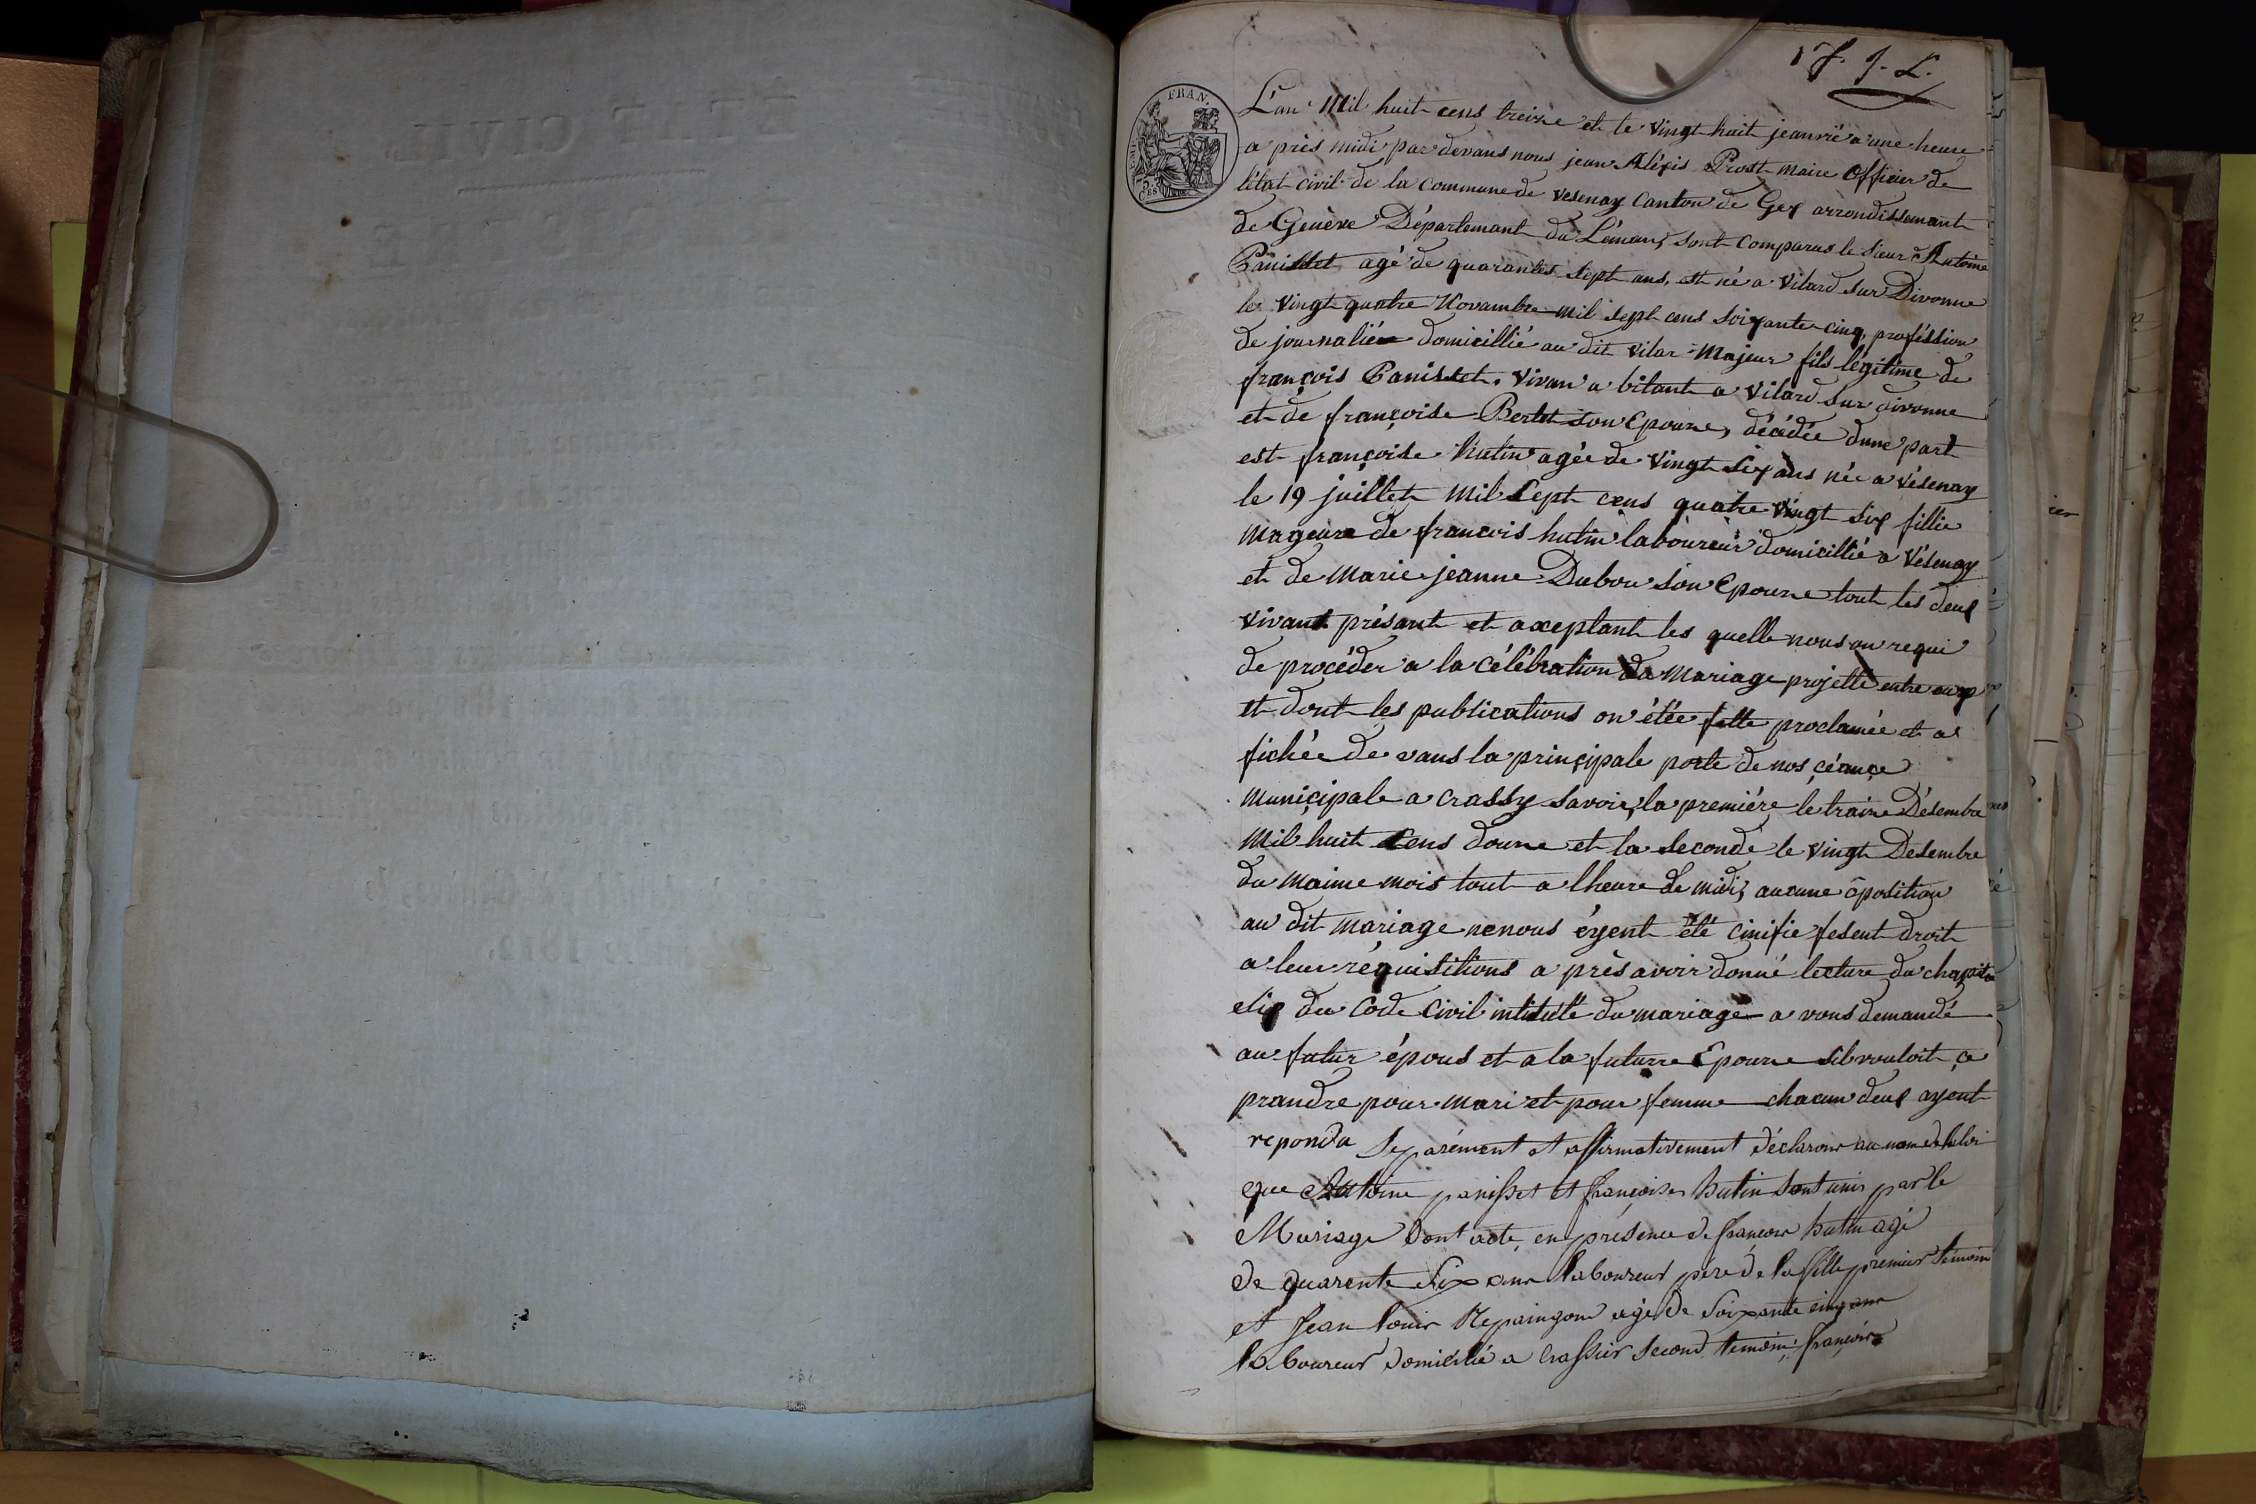 1 f. J. L.
FRAN.
L'an Mil huit cens treize et le vingt huit jeanvié a une heure
a près midi par devans nous jean Aléxis Prost maire Officier de
létat civil de la Commune de vesenay Canton de Gex arrondissemant
de Genève Départemant du Léman, sont comparus le sieur Antoine
Panisset agé de quarantes sept ans, est né a vilard sur Divonne
le vingt quatre Novambre mil sept cens soixante cinq, proféssion
de journaliér domicillié au dit vilar Majeur fils légitime de
françois Panisset, vivan a bitant a vilard sur divonne
et de françoise Bertet son Epouze, décédée dune part
est françoise Hutin agée de vingt six ans née a vésenay
le 19 juillet Mil Sept cens quatre vingt six fillie
Mageure de francois hutin laboureur domicillié a Vésenay
et de Marie jeanne Dubou son Epouze tout les deux
vivant présant et axeptant les quelle nous on requi
de procéder a la célébration du Mariage projetté entre eux
et dont les publications on étée fette proclamée et a
fichée de vans la prinçipale porte de nos céançe
Muniçipale a crassy savoir, la première le traize Désembre
Mil huit Cens douze et la Seconde le vingt Desembre
du Maime mois tout a lheure de midi, aucune oposition
au dit Mariage ne nous éyent été cinifie fesent droit
a leur réquisitions a près avoir donné lecture du chapitre
six du Code Civil intitulé du mariage a vons demandé
au futur épous et a la futurre Epouze sil vouloit çe
prandre pour Mari et pour femme chacun deux ayent
repondu Separément et affirmativement déclarons au nom de la loi
que Antoine panisset et françoise hutin sont unis par le
Mariage Dont acte, en présence de françois hutin agé
de quarente Six ans laboureur père de la fille premier témoin
et Jean louis Repaingon agé de Soixante cinq ans
laboureur domicilié a Crassier second temoin françois